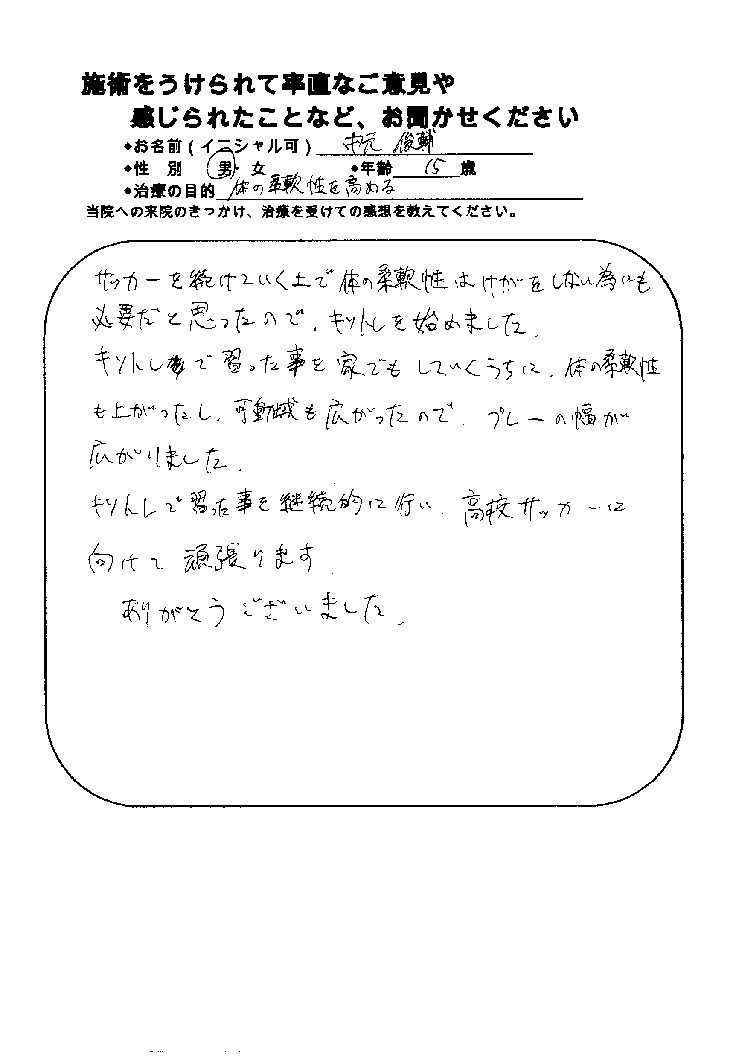 施術をうけられて率直なご意見や
感じられたことなど、お聞かせください
◆お名前(イニシャル可) 俊輔
◆性 別 男・女 ◆年齢 15 歳
◆治療の目的 体の柔軟性を高める
当院への来院のきっかけ、治療を受けての感想を教えてください。
サッカーを続けていく上で体の柔軟性はけがをしない為にも
必要だと思ったので、キソトレを始めました。
キソトレで習った事を家でもしていくうちに、体の柔軟性
も上がったし、可動域も広がったので、プレーの幅が
広がりました。
キソトレで習った事を継続的に行い、高校サッカーに
向けて頑張ります
ありがとうございました。